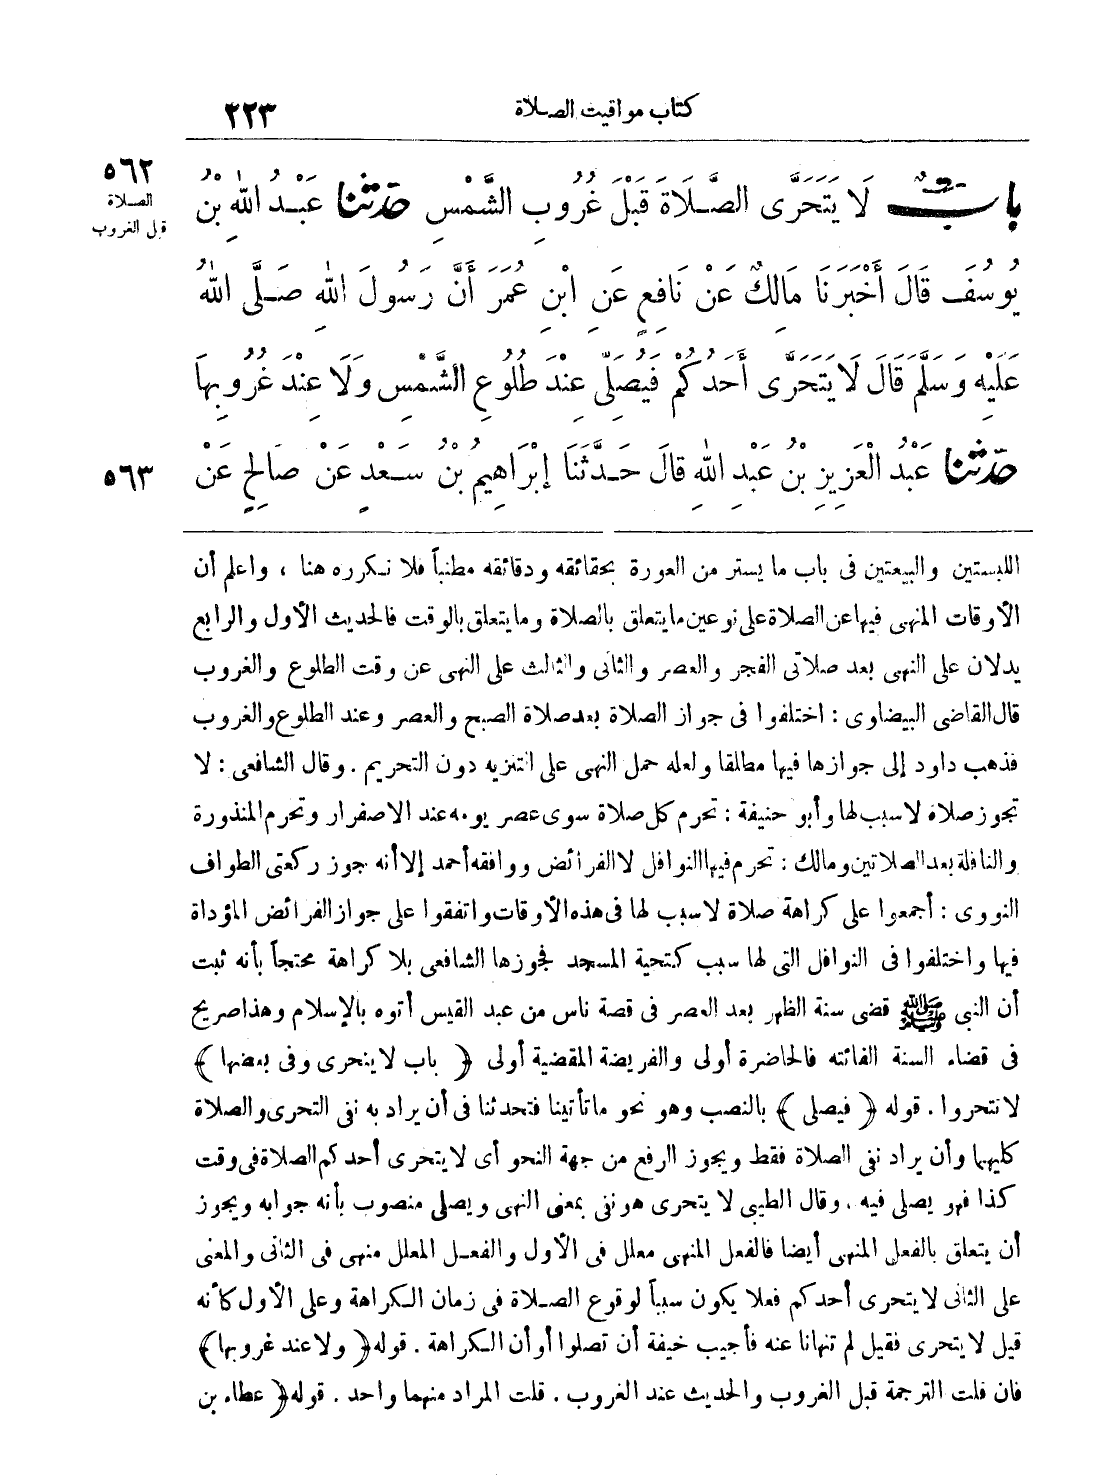 كتاب مواقيت الصلاة
٢٢٣
٥٦٢
الصلاة
قبل الغروب
بابٌ لَا يَتَحَرَّى الصَّلَاةَ قَبْلَ غُرُوبِ الشَّمْسِ حدثنا عَبْدُ اللهِ بْنُ
يُوسُفَ قَالَ أَخْبَرَنَا مَالِكٌ عَنْ نَافِعٍ عَنِ ابْنِ عُمَرَ أَنَّ رَسُولَ اللهِ صَلَّى اللهُ
عَلَيْهِ وَسَلَّمَ قَالَ لَا يَتَحَرَّى أَحَدُكُمْ فَيُصَلِّيَ عِنْدَ طُلُوعِ الشَّمْسِ وَلَا عِنْدَ غُرُوبِهَا
٥٦٣
حدثنا عَبْدُ الْعَزِيزِ بْنُ عَبْدِ اللهِ قَالَ حَدَّثَنَا إِبْرَاهِيمُ بْنُ سَعْدٍ عَنْ صَالِحٍ عَنْ
اللبستين والبيعتين فى باب ما يستر من العورة بحقائقه ودقائقه مطنباً فلا نكرره هنا ، واعلم أن
الأوقات المنهى فيها عن الصلاة على نوعين ما يتعلق بالصلاة وما يتعلق بالوقت فالحديث الأول والرابع
يدلان على النهى بعد صلاتى الفجر والعصر والثانى والثالث على النهى عن وقت الطلوع والغروب
قال القاضى البيضاوى : اختلفوا فى جواز الصلاة بعد صلاة الصبح والعصر وعند الطلوع والغروب
فذهب داود إلى جوازها فيها مطلقا ولعله حمل النهى على التنزيه دون التحريم . وقال الشافعى : لا
تجوز صلاة لا سبب لها وأبو حنيفة : تحرم كل صلاة سوى عصر يومه عند الاصفرار وتحرم المنذورة
والنافلة بعد الصلاتين ومالك : تحرم فيها النوافل لا الفرائض ووافقه أحمد إلا أنه جوز ركعتى الطواف
النووى : أجمعوا على كراهة صلاة لا سبب لها فى هذه الأوقات واتفقوا على جواز الفرائض المؤداة
فيها واختلفوا فى النوافل التى لها سبب كتحية المسجد فجوزها الشافعى بلا كراهة محتجاً بأنه ثبت
أن النبى ﷺ قضى سنة الظهر بعد العصر فى قصة ناس من عبد القيس أتوه بالإسلام وهذا صريح
فى قضاء السنة الفائته فالحاضرة أولى والفريضة المقضية أولى ﴿ باب لا يتحرى وفى بعضها ﴾
لا تتحروا . قوله ﴿ فيصلى ﴾ بالنصب وهو نحو ما تأتينا فتحدثنا فى أن يراد به نفى التحرى والصلاة
كليهما وأن يراد نفى الصلاة فقط ويجوز الرفع من جهة النحو أى لا يتحرى أحدكم الصلاة فى وقت
كذا فهو يصلى فيه . وقال الطيبى لا يتحرى هو نفى بمعنى النهى ويصلى منصوب بأنه جوابه ويجوز
أن يتعلق بالفعل المنهى أيضا فالفعل المنهى معلل فى الأول والفعل المعلل منهى فى الثانى والمعنى
على الثانى لا يتحرى أحدكم فعلا يكون سبباً لوقوع الصلاة فى زمان الكراهة وعلى الأول كأنه
قيل لا يتحرى فقيل لم تنهانا عنه فأجيب خيفة أن تصلوا أوأن الكراهة . قوله ﴿ ولا عند غروبها ﴾
فان قلت الترجمة قبل الغروب والحديث عند الغروب . قلت المراد منهما واحد . قوله ﴿ عطاء بن